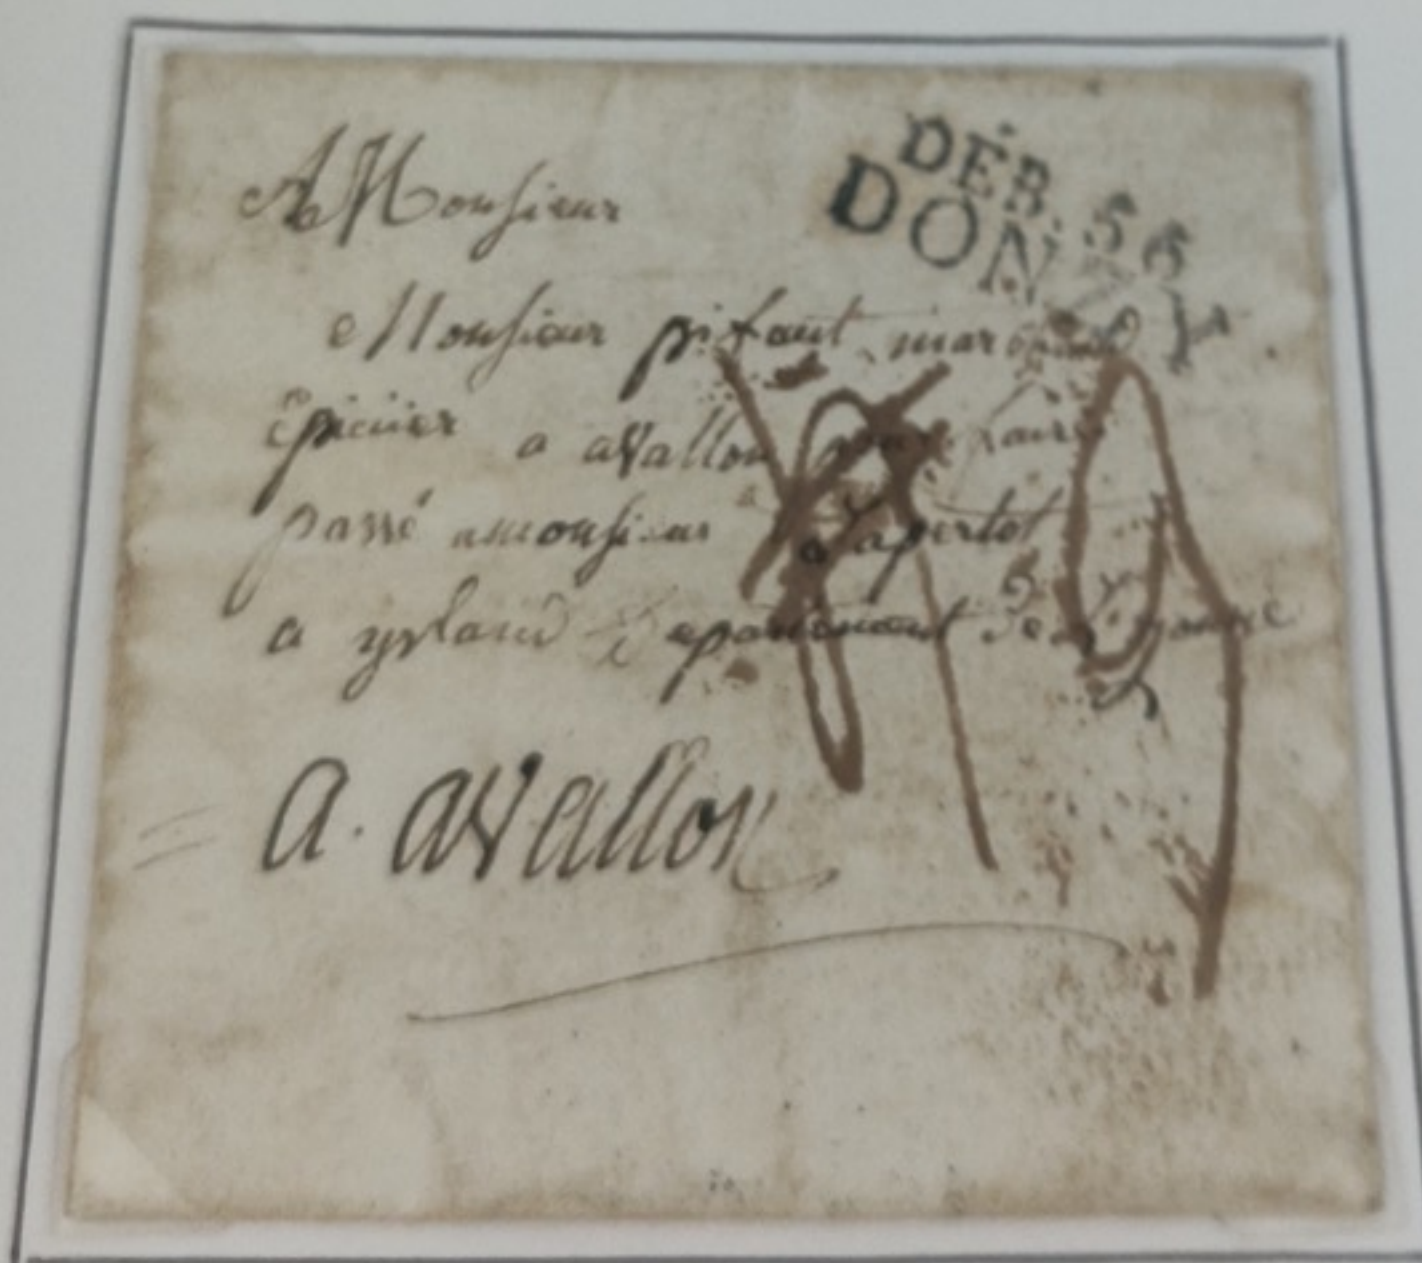 DÉB. 56
DONZY
A Monsieur
Monsieur pifaut marchand
épicier a avallon pour faire
passé a monsieur Lapertot
a ysland Departement de L'yonne
a. avallon